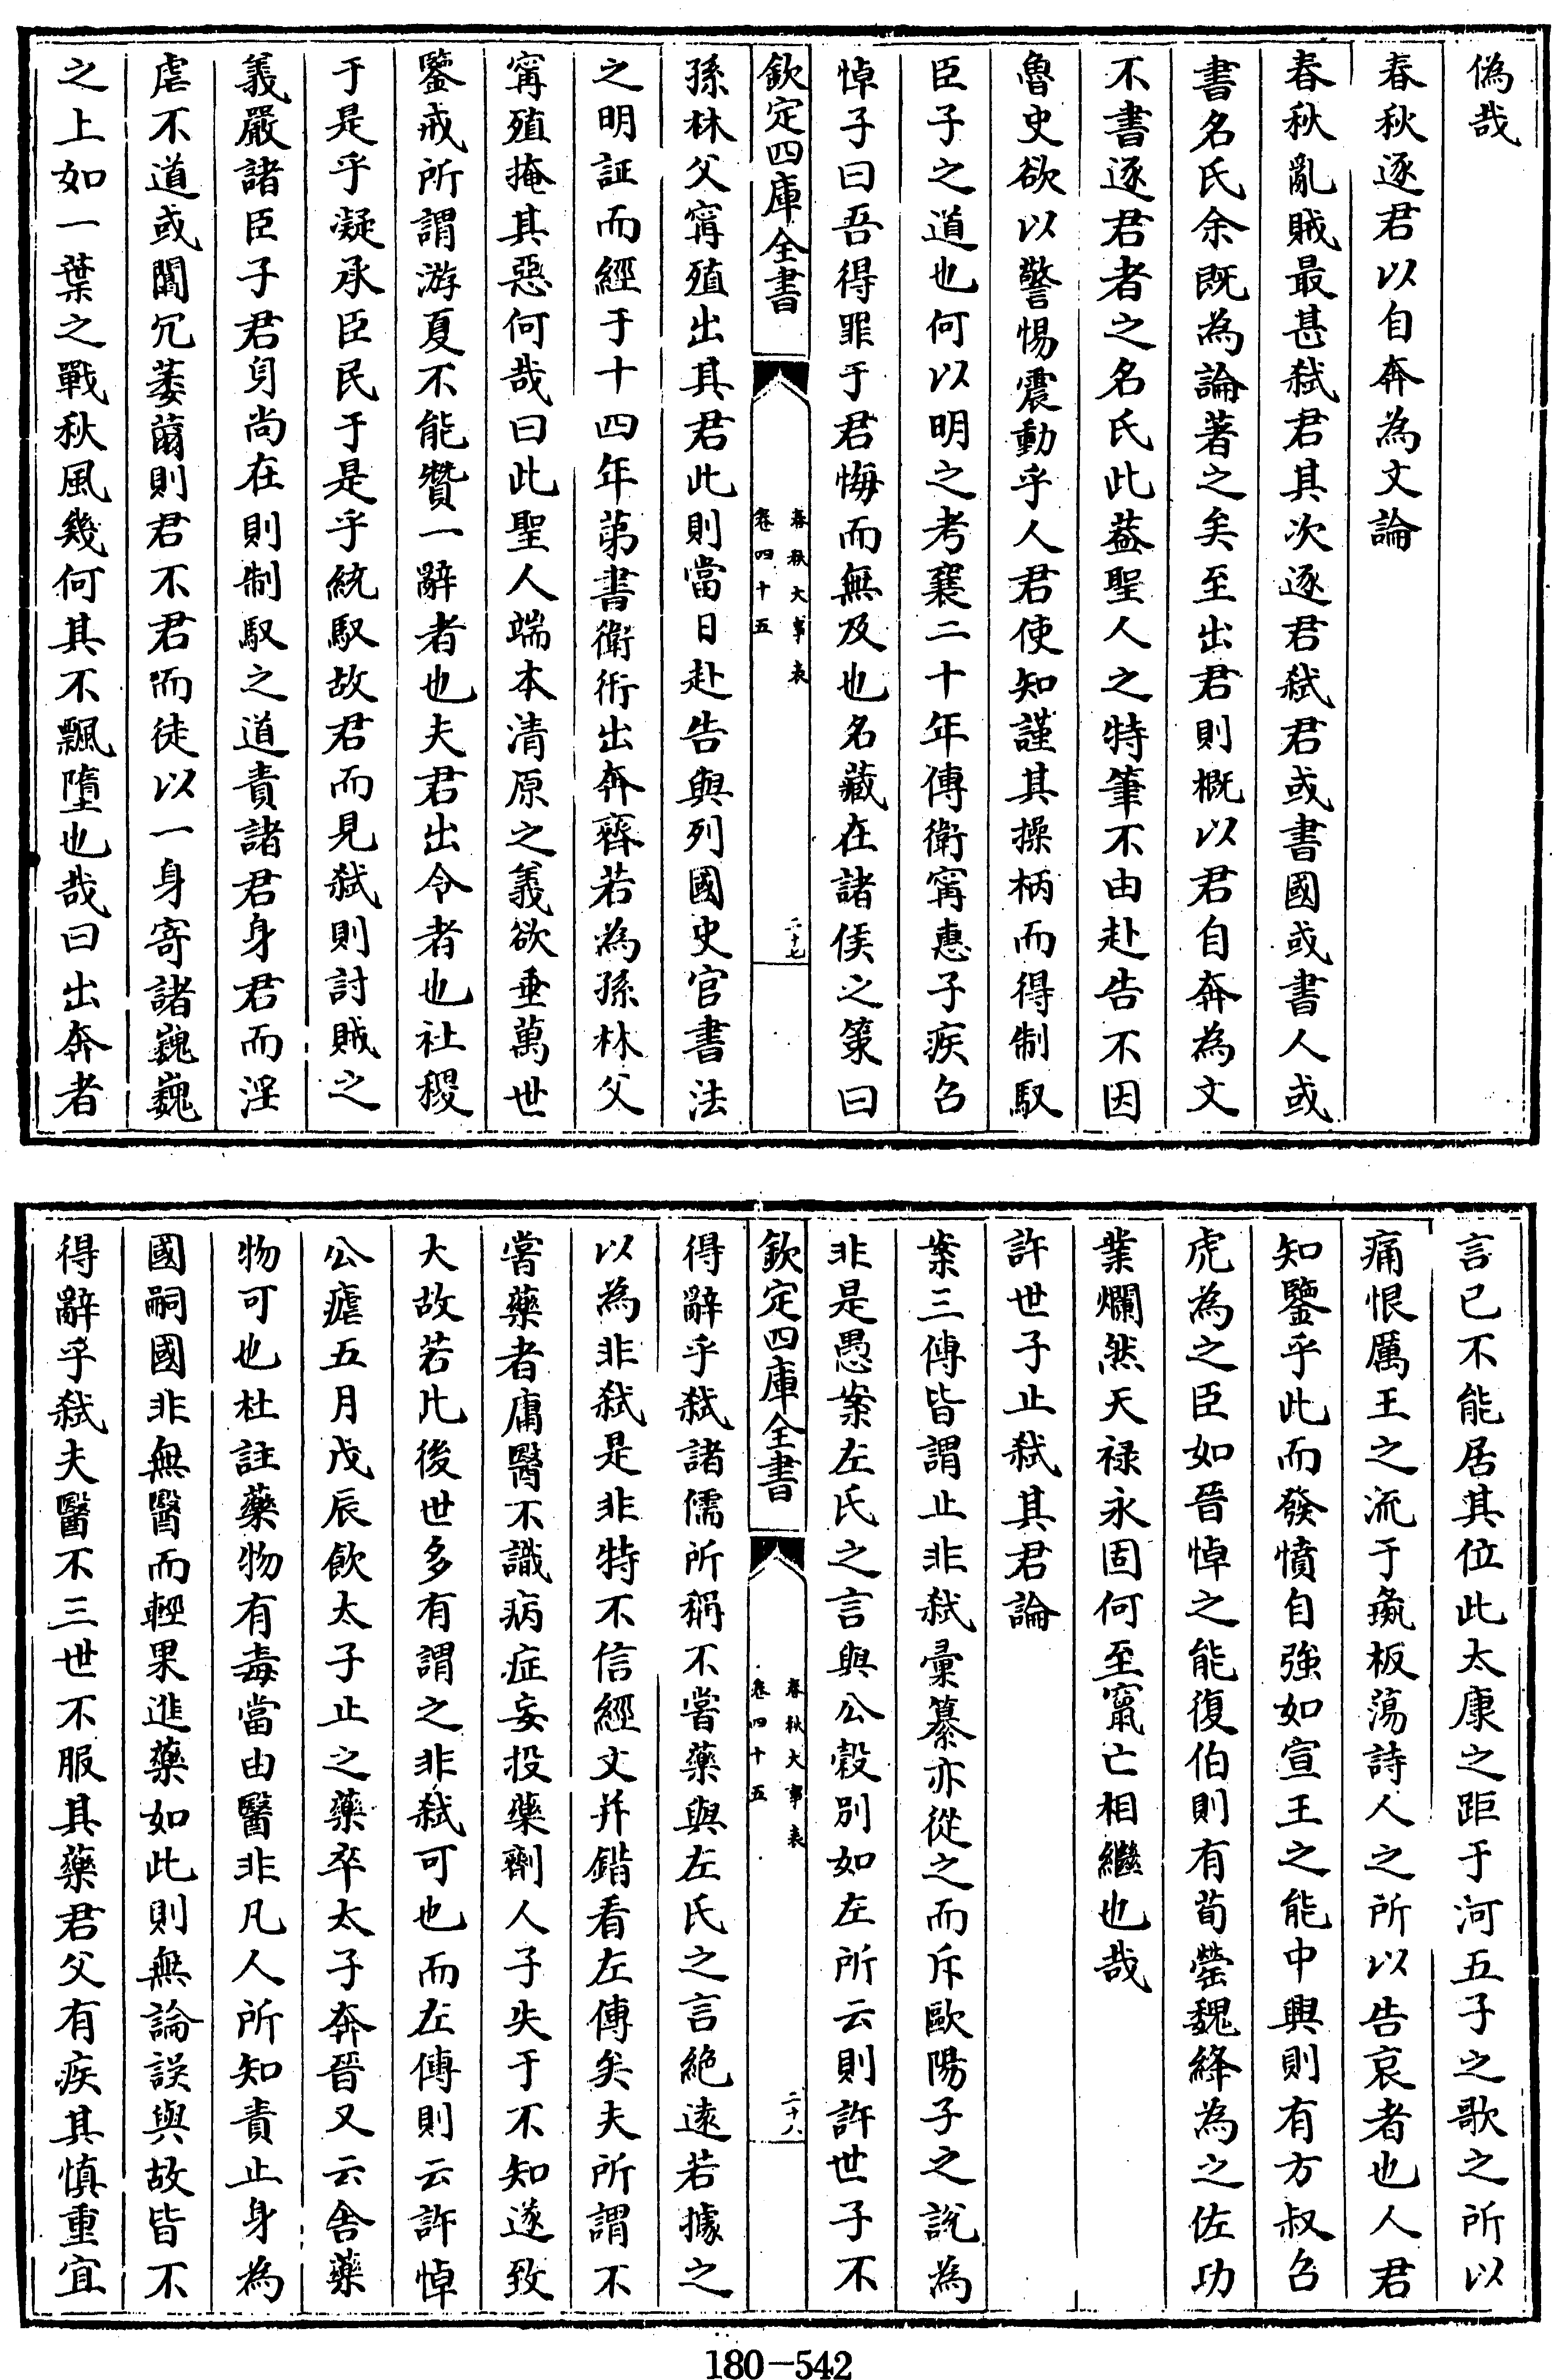 偽哉
春秋逐君以自奔為文論
春秋亂賊最甚弑君其次逐君弑君或書國或書人或
書名氏余既為論著之矣至出君則概以君自奔為文
不書逐君者之名氏此葢聖人之特筆不由赴告不因
魯史欲以警惕震動乎人君使知謹其操柄而得制馭
臣子之道也何以明之考襄二十年傳衛甯惠子疾召
悼子曰吾得罪于君悔而無及也名藏在諸侯之策曰
欽定四庫全書
春秋大事表
卷四十五
二十七
孫林父甯殖出其君此則當日赴告與列國史官書法
之明証而經于十四年第書衛衎出奔齊若為孫林父
甯殖掩其惡何哉曰此聖人端本清原之義欲垂萬世
鑒戒所謂游夏不能贊一辭者也夫君出令者也社稷
于是乎凝承臣民于是乎統馭故君而見弑則討賊之
義嚴諸臣子君身尚在則制馭之道責諸君身君而淫
虐不道或闒冗萎薾則君不君而徒以一身寄諸巍巍
之上如一葉之戰秋風幾何其不飄墮也哉曰出奔者
言已不能居其位此太康之距于河五子之歌之所以
痛恨厲王之流于彘板蕩詩人之所以告哀者也人君
知鑒乎此而發憤自強如宣王之能中興則有方叔召
虎為之臣如晉悼之能復伯則有荀罃魏絳為之佐功
業爛然天祿永固何至竄亡相繼也哉
許世子止弑其君論
案三傳皆謂止非弑彙纂亦從之而斥歐陽子之說為
非是愚案左氏之言與公穀別如左所云則許世子不
欽定四庫全書
春秋大事表
卷四十五
二十八
得辭乎弑諸儒所稱不嘗藥與左氏之言絕遠若據之
以為非弑是非特不信經文并錯看左傳矣夫所謂不
嘗藥者庸醫不識病症妄投藥劑人子失于不知遂致
大故若此後世多有謂之非弑可也而左傳則云許悼
公瘧五月戊辰飲太子止之藥卒太子奔晉又云舍藥
物可也杜註藥物有毒當由醫非凡人所知責止身為
國嗣國非無醫而輕果進藥如此則無論誤與故皆不
得辭乎弑夫醫不三世不服其藥君父有疾其慎重宜
180-542